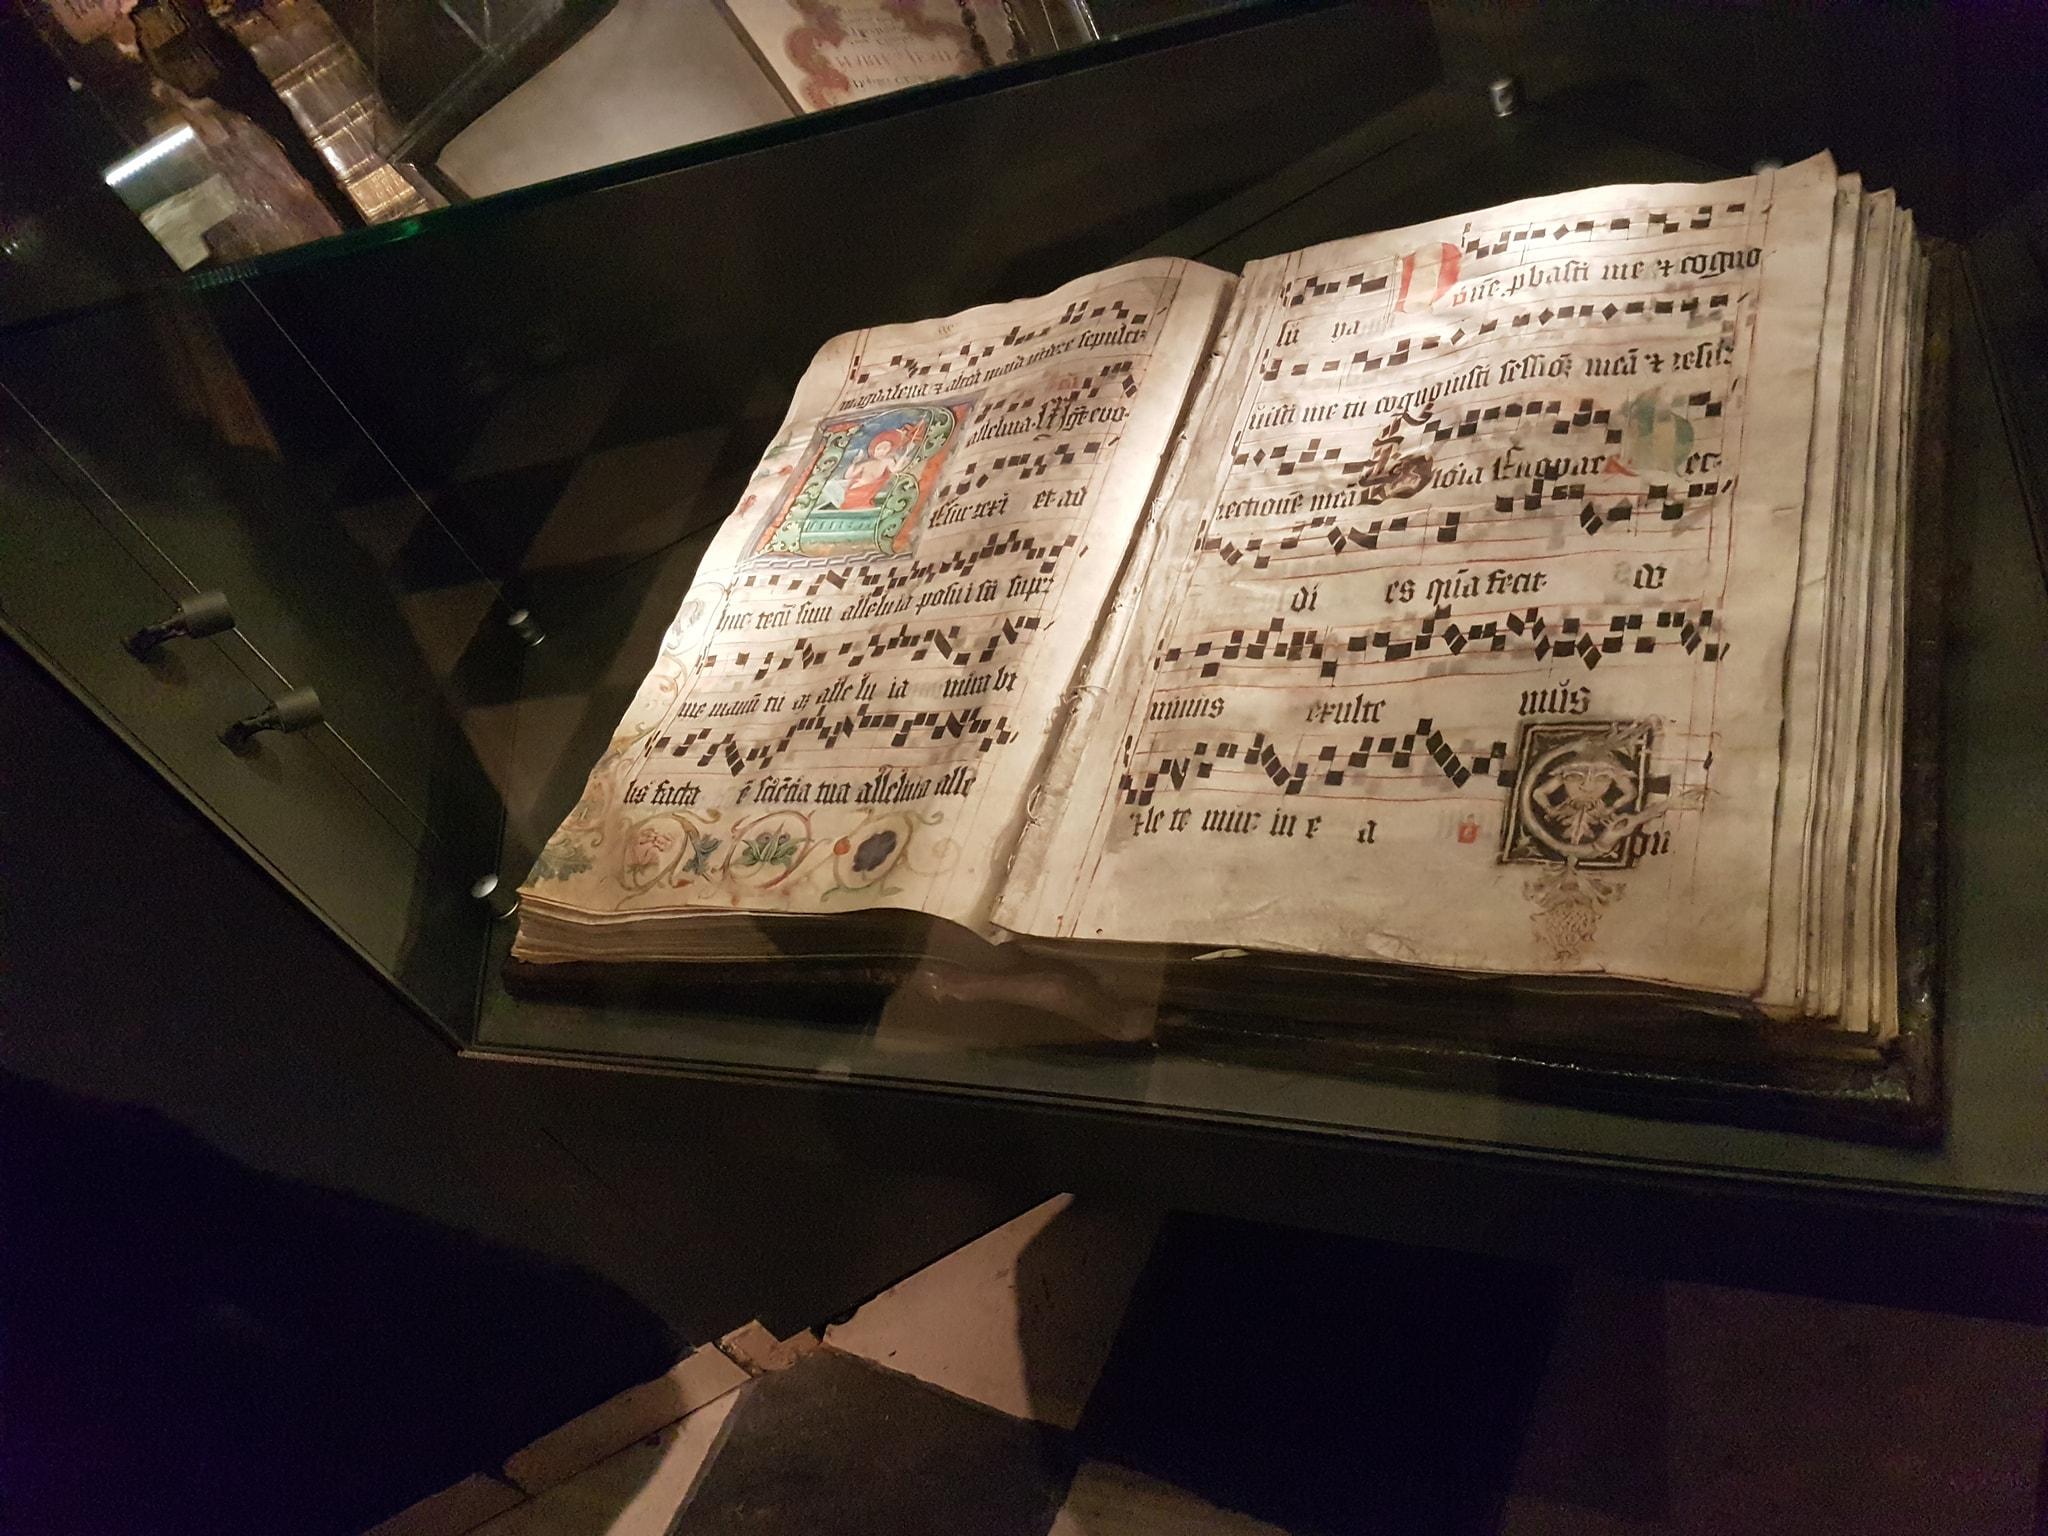 magdalena ⁊ altera maria videre sepulcr
alleluia. evo
resurrexi et ad
huc tecū sum alleluia posuisti supr
me manū tu ā alle lu ia mirabi
lis facta ē sciētia tua alleluia alle
lu ya One pbasti me ⁊ cogno
uisti me tu cognouisti sessionē meā ⁊ resur
rectionē meā Gloria Euouae ec
di es quā fecit do
minus exulte mus
⁊ le te mur in e a